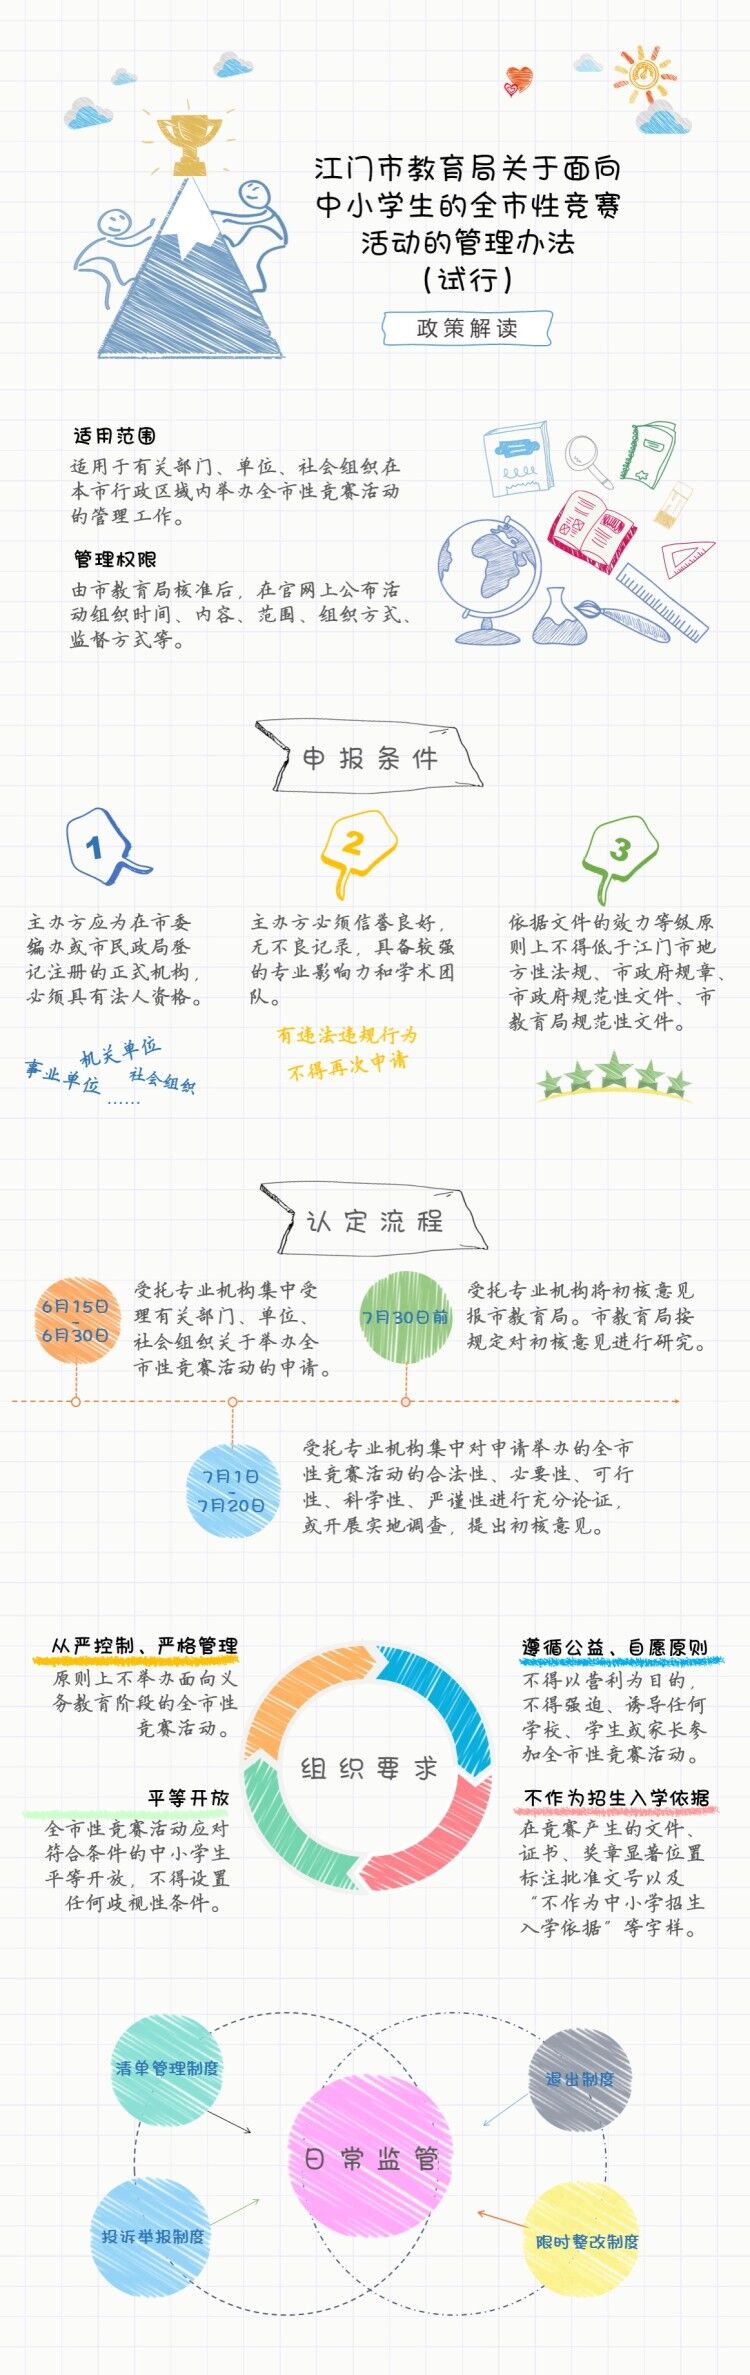 江门市教育局关于面向
中小学生的全市性竞赛
活动的管理办法
(试行)
政策解读
适用范围
适用于有关部门、单位、社会组织在
本市行政区域内举办全市性竞赛活动
的管理工作。
管理权限
由市教育局核准后，在官网上公布活
动组织时间、内容、范围、组织方式、
监督方式等。
申报条件
1
主办方应为在市委
编办或市民政局登
记注册的正式机构，
必须具有法人资格。
机关单位
事业单位
社会组织
……
2
主办方必须信誉良好，
无不良记录，具备较强
的专业影响力和学术团
队。
有违法违规行为
不得再次申请
3
依据文件的效力等级原
则上不得低于江门市地
方性法规、市政府规章、
市政府规范性文件、市
教育局规范性文件。
认定流程
6月15日
-
6月30日
受托专业机构集中受
理有关部门、单位、
社会组织关于举办全
市性竞赛活动的申请。
7月30日前
受托专业机构将初核意见
报市教育局。市教育局按
规定对初核意见进行研究。
7月1日
-
7月20日
受托专业机构集中对申请举办的全市
性竞赛活动的合法性、必要性、可行
性、科学性、严谨性进行充分论证，
或开展实地调查，提出初核意见。
从严控制、严格管理
原则上不举办面向义
务教育阶段的全市性
竞赛活动。
遵循公益、自愿原则
不得以营利为目的，
不得强迫、诱导任何
学校、学生或家长参
加全市性竞赛活动。
组织要求
平等开放
全市性竞赛活动应对
符合条件的中小学生
平等开放，不得设置
任何歧视性条件。
不作为招生入学依据
在竞赛产生的文件、
证书、奖章显著位置
标注批准文号以及
“不作为中小学招生
入学依据”等字样。
清单管理制度
退出制度
日常监管
投诉举报制度
限时整改制度